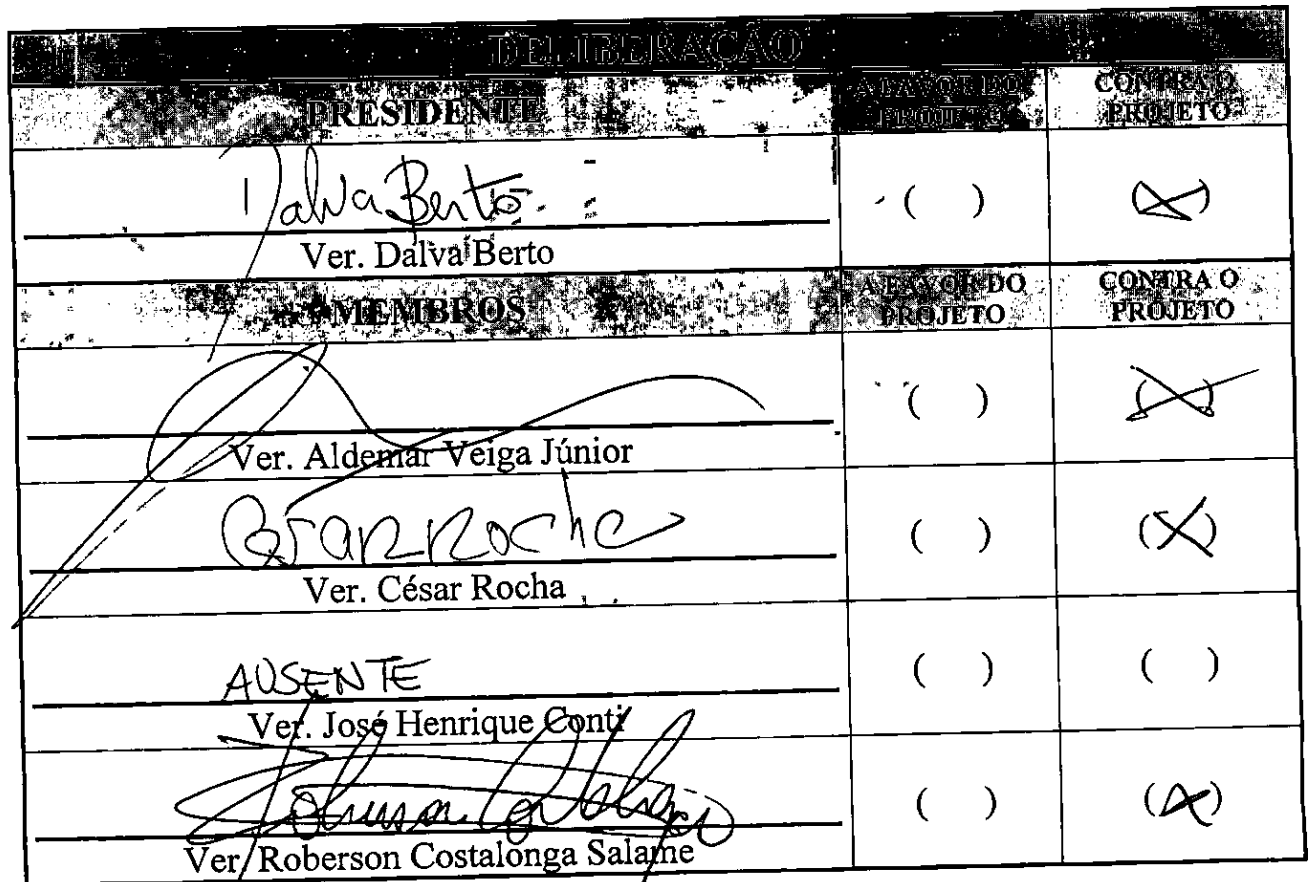 DELIBERAÇÃO
PRESIDENTE A FAVOR DO PROJETO CONTRA O PROJETO
Dalva Berto
Ver. Dalva Berto ( ) (X)
MEMBROS A FAVOR DO PROJETO CONTRA O PROJETO
Ver. Aldemar Veiga Júnior ( ) (X)
César Rocha
Ver. César Rocha ( ) (X)
AUSENTE
Ver. José Henrique Conti ( ) ( )
Ver. Roberson Costalonga Salame ( ) (X)